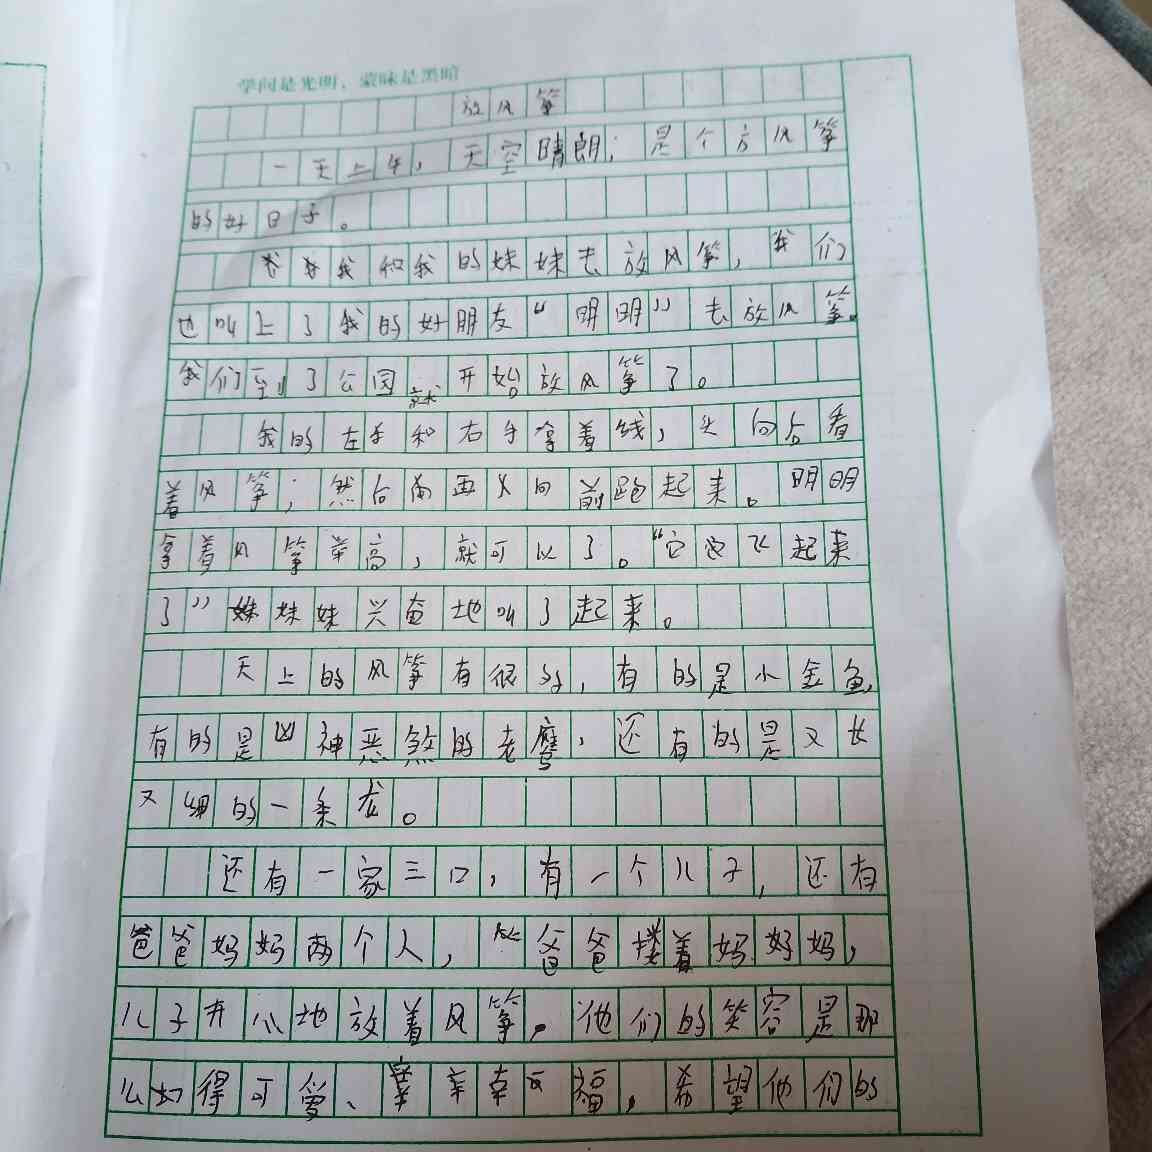 学问是光明，蒙昧是黑暗
放风筝
一天上午，天空晴朗；是个方风筝
的好日子。
我和我的妹妹去放风筝，我们
也叫上了我的好朋友“明明”去放风筝。
我们到了公园就开始放风筝了。
我的左手和右手拿着线，头向后看
着风筝；然后再又向前跑起来。明明
拿着风筝举高，就可以了。“它飞起来
了”妹妹兴奋地叫了起来。
天上的风筝有很多，有的是小金鱼，
有的是凶神恶煞的老鹰，还有的是又长
又细的一条龙。
还有一家三口，有一个儿子，还有
爸爸妈妈两个人，爸爸搂着妈妈，
儿子开心地放着风筝，他们的笑容是那
么得可爱、幸福，希望他们的